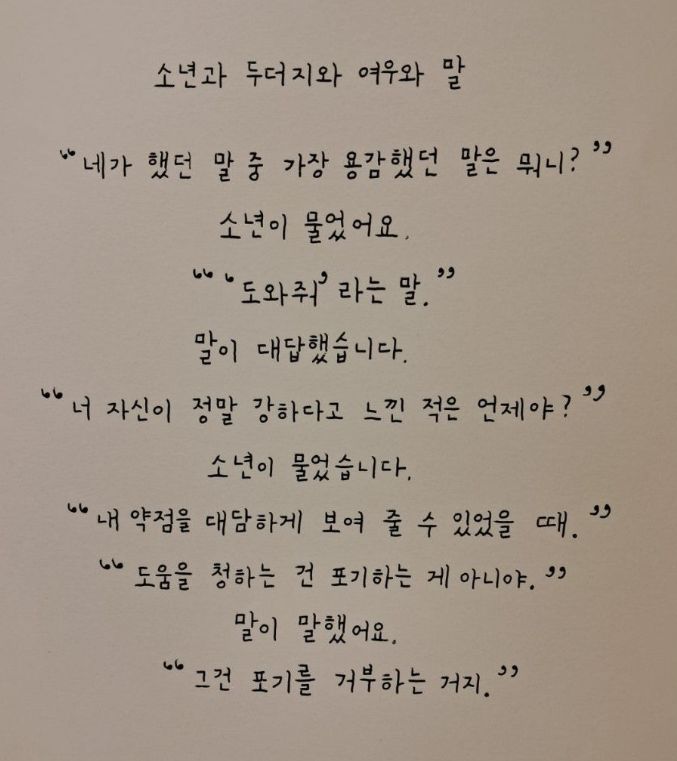 소년과 두더지와 여우와 말
“네가 했던 말 중 가장 용감했던 말은 뭐니?”
소년이 물었어요.
“‘도와줘’라는 말.”
말이 대답했습니다.
“너 자신이 정말 강하다고 느낀 적은 언제야?”
소년이 물었습니다.
“내 약점을 대담하게 보여 줄 수 있었을 때.”
“도움을 청하는 건 포기하는 게 아니야.”
말이 말했어요.
“그건 포기를 거부하는 거지.”